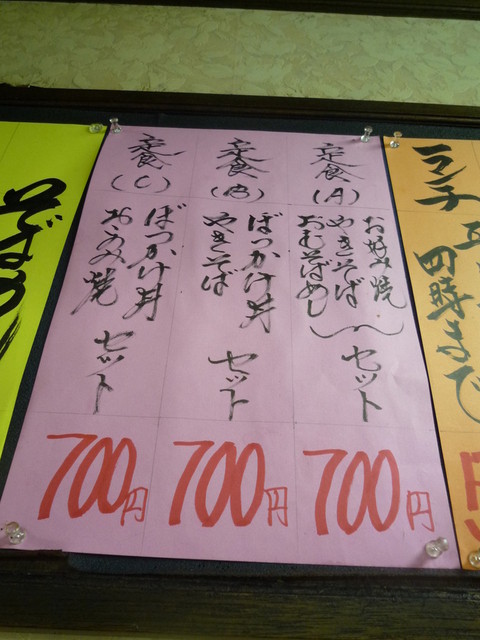 ランチ
四時まで
定食
(A)
お好み焼
やきそば
おむそばめし
セット
700円
定食
(B)
ぼっかけ丼
やきそば
セット
700円
定食
(C)
ぼっかけ丼
おこのみ焼
セット
700円